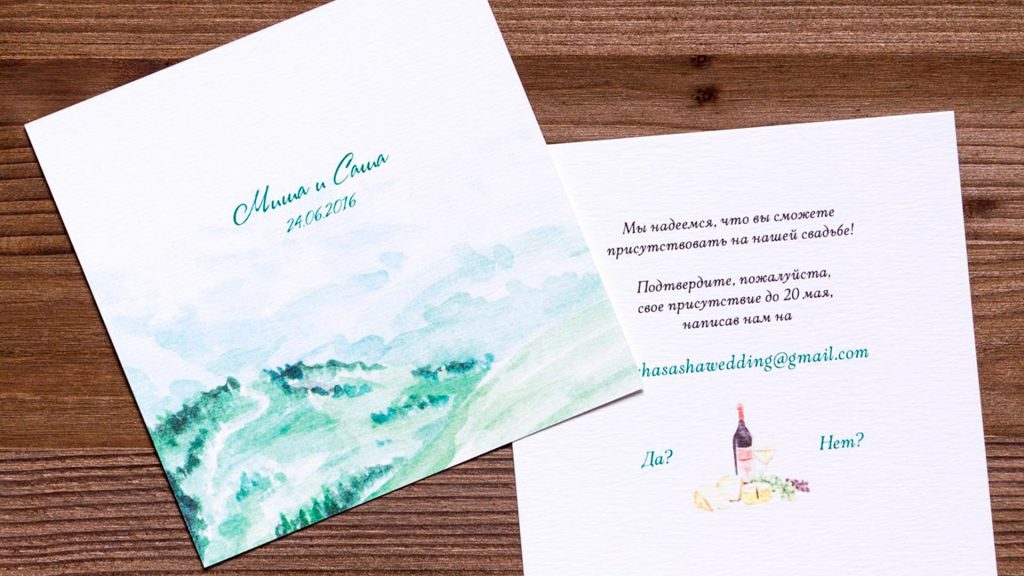 Миша и Саша
24.06.2016
Мы надеемся, что вы сможете
присутствовать на нашей свадьбе!
Подтвердите, пожалуйста,
свое присутствие до 20 мая,
написав нам на
hasashawedding@gmail.com
Да?
Нет?